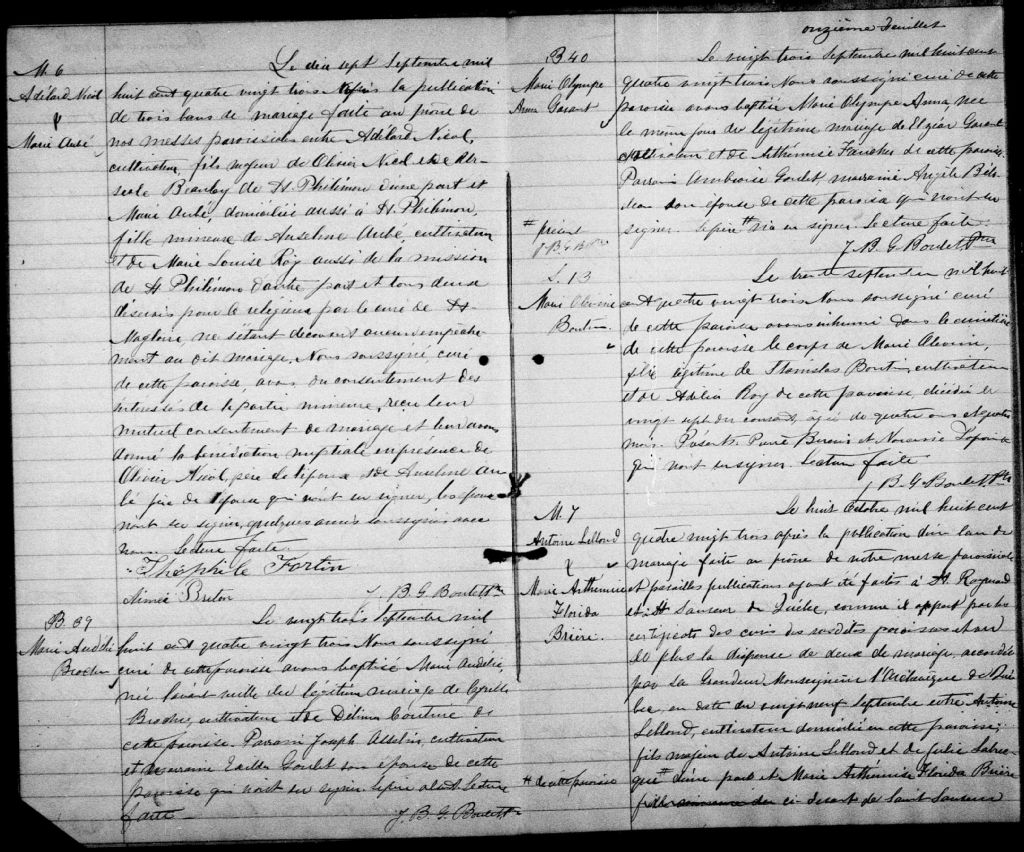 M. 6
Adélard Nicol
&
Marie Aubé
Le dix sept Septembre mil
huit cent quatre vingt trois après la publication
de trois bans de mariage faite au prône de
nos messes paroissiales entre Adélard Nicol,
cultivateur, fils majeur de Olivier Nicol et de
de St Philémon d'une part et
Marie Aubé, domiciliée aussi à St Philémon,
fille mineure de Anselme Aubé, cultivateur
et de Marie Louise Roy aussi de la mission
de St Philémon d'autre part et tous deux
desservis pour le religieux par le curé de St
Magloire, ne s'étant découvert aucun empêche-
ment au dit mariage, Nous soussigné curé
de cette paroisse, avons du consentement des
intéressés de la partie mineure, reçu leur
mutuel consentement de mariage et leur avons
donné la bénédiction nuptiale en présence de
Olivier Nicol, père de l'époux et de Anselme Au
bé père de l'épouse qui n'ont su signer, les époux
n'ont su signer, quelques amis soussignés avec
nous. Lecture faite.
Théophile Fortin
Aimée Breton
J. B. G. Boulet Ptre
B. 39
Marie Audélie
Brochu
Le vingt trois Septembre mil
huit cent quatre vingt trois Nous soussigné
curé de cette paroisse avons baptisé Marie Audélie,
née l'avant veille du légitime mariage de Cyrille
Brochu, cultivateur et de Délima Couture de
cette paroisse. Parrain Joseph Asselin, cultivateur
et marraine Goulet son épouse de cette
paroisse qui n'ont su signer, le père absent. Lecture
faite
J. B. G. Boulet Ptre
onzième Feuillet
B 40
Marie Olympe
Anna Garant
Le vingt trois Septembre mil huit cent
quatre vingt trois Nous soussigné curé de cette
paroisse avons baptisé Marie Olympe Anna, née
le même jour du légitime mariage de Elzéar Garant
cultivateur et de Arthémise Faucher de cette paroisse.
Parrain Ambroise Goulet, marraine Angèle
son épouse de cette paroisse qui n'ont su
signer. Le père # n'a su signer. Lecture faite.
# présent
J. B. G. B. Ptre
J. B. G. Boulet Ptre
S. 13
Marie Alvine
Boutin
Le trente septembre mil huit
cent quatre vingt trois Nous soussigné curé
de cette paroisse avons inhumé dans le cimetière
de cette paroisse le corps de Marie Alvine,
fille légitime de Stanislas Boutin, cultivateur
et de Adélia Roy de cette paroisse, décédée le
vingt sept du courant, âgée de quatre ans et quatre
mois. Présents Pierre et Narcisse
qui n'ont su signer. Lecture faite
J. B. G. Boulet Ptre
M. 7
Antoine Leblond
&
Marie Arthémise
Florida
Brière.
Le huit Octobre mil huit cent
quatre vingt trois après la publication d'un ban de
mariage faite au prône de notre messe paroissiale
et pareilles publications ayant été faites à St
et St Sauveur de Québec, comme il appert par les
certificats des curés des susdites paroisses et vu
de plus la dispense de deux de mariage, accordée
par Sa Grandeur Monseigneur l'Archevêque de Qué
bec, en date du vingt neuf Septembre entre Antoine
Leblond, cultivateur domicilié en cette paroisse;
fils majeur de Antoine Leblond et de Julie Labrec
que # d'une part et Marie Arthémise Florida Brière
# de cette paroisse
fille mineure de ci-devant de Saint Sauveur